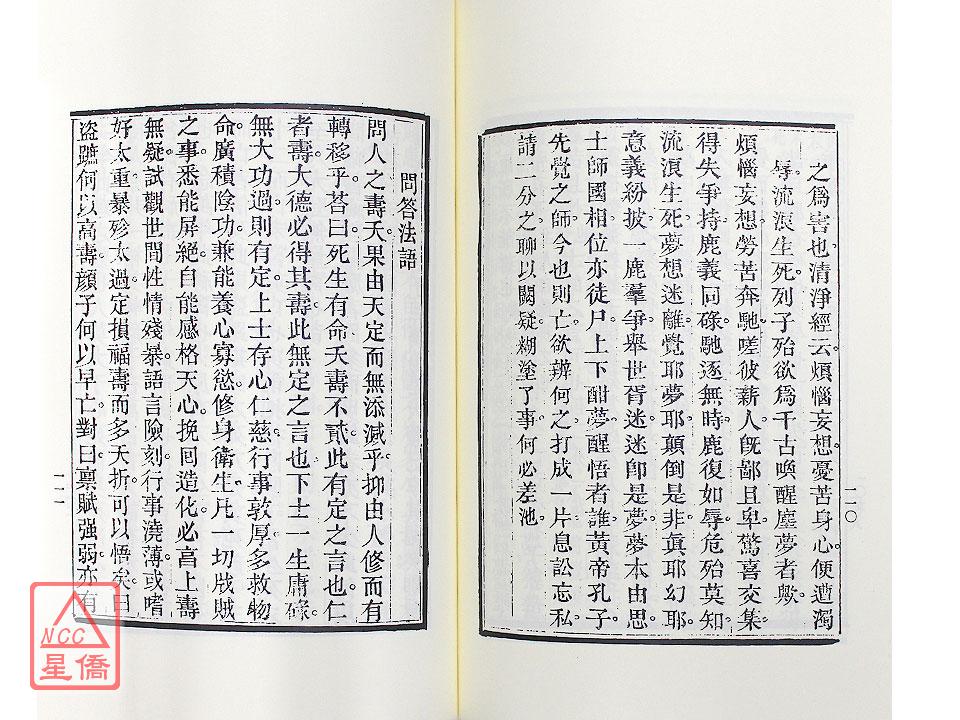 之爲害也清淨經云煩惱妄想。憂苦身心便遭濁
辱。流浪生死。列子殆欲爲千古喚醒塵夢者歟。
煩惱妄想。勞苦奔馳。嗟彼薪人。旣鄙且卑。驚喜交集。
得失爭持。鹿義同碌。馳逐無時。鹿復如辱。危殆莫知。
流浪生死。夢想迷離。覺耶夢耶。顚倒是非。眞耶幻耶。
意義紛披。一鹿羣爭。舉世胥迷。迷卽是夢。夢本由思。
士師國相。位亦徒尸。上下酣夢。醒悟者誰。黃帝孔子。
先覺之師。今也則亡。欲辨何之。打成一片。息訟忘私。
請二分之。聊以闕疑。糊塗了事。何必差池。
一一〇
問答法語
問人之壽夭。果由天定而無添減乎。抑由人修而有
轉移乎。荅曰。死生有命。夭壽不貳。此有定之言也。仁
者壽。大德必得其壽。此無定之言也。下士一生庸碌。
無大功過。則有定。上士存心仁慈。行事敦厚。多救物
命。廣積陰功。兼能養心寡慾。修身衛生。凡一切戕賊
之事。悉能屏絕。自能感格天心。挽囘造化。必高上壽
無疑。試觀世間性情殘暴。語言險刻。行事澆薄。或嗜
好太重。暴殄太過。定損福壽。而多夭折。可以悟矣。曰
盜蹠何以高壽。顏子何以早亡。對曰。稟賦强弱。亦有
一一一
NCC
星僑